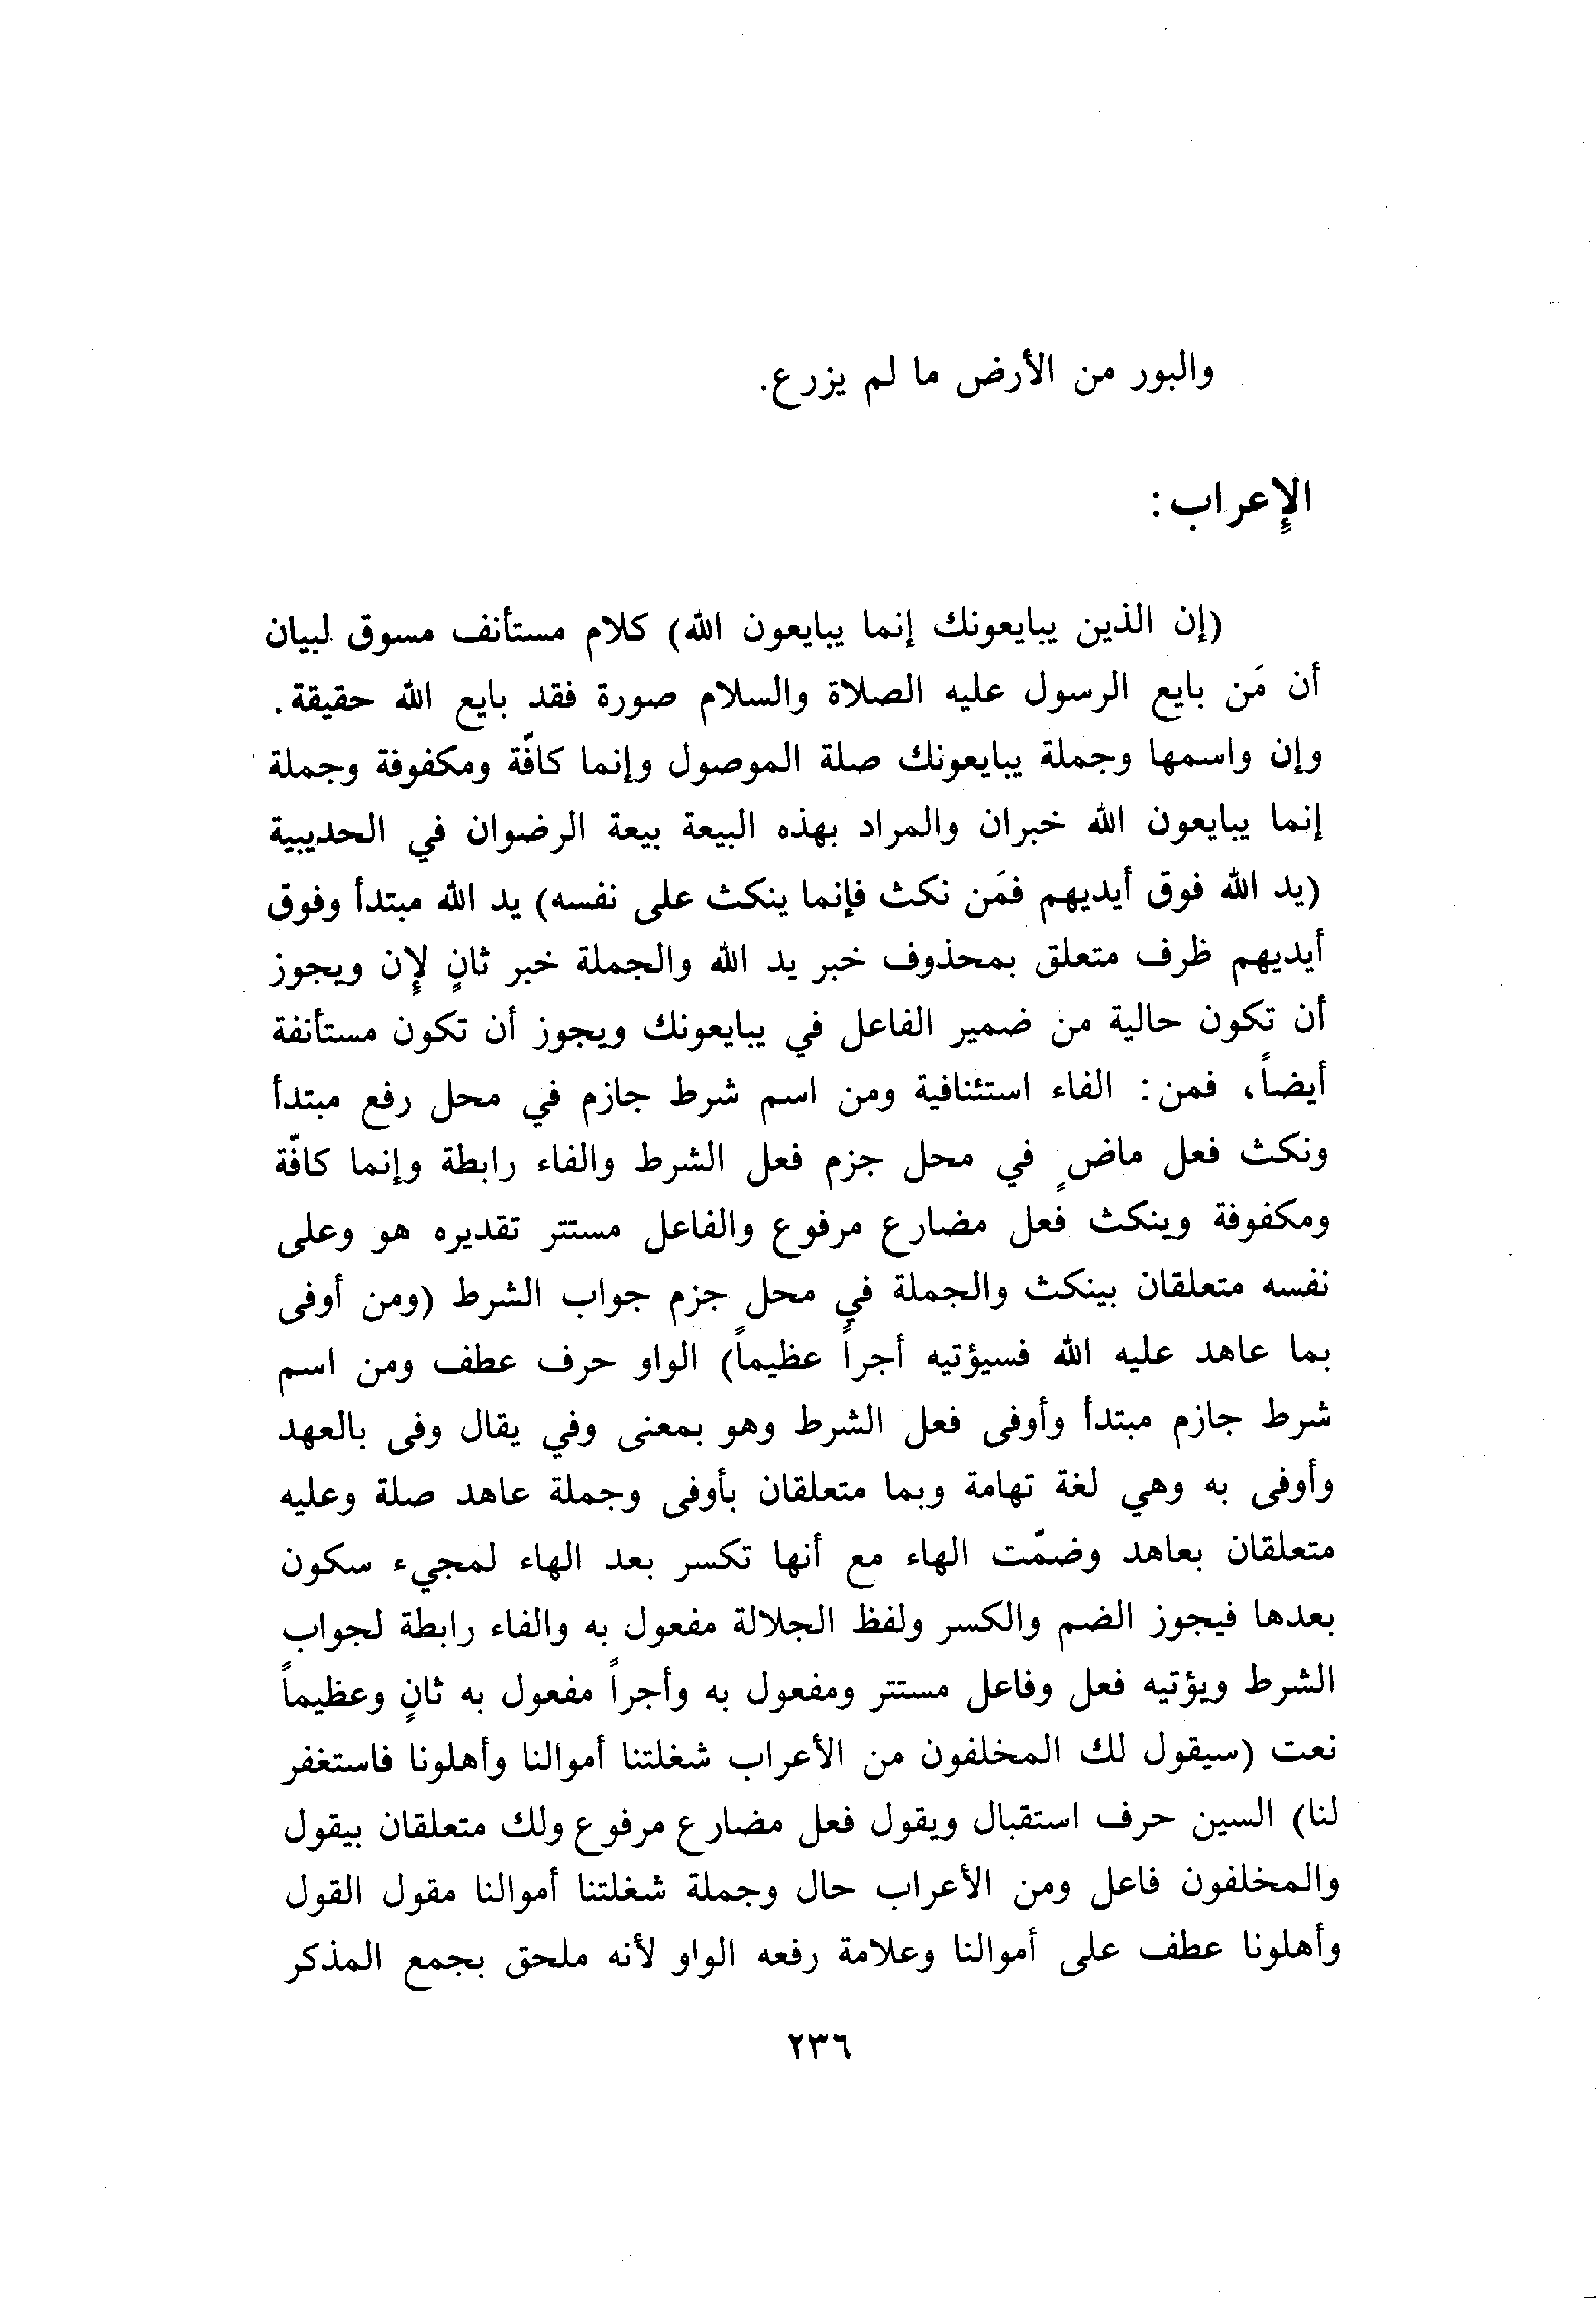 والبور من الأرض ما لم يزرع.
الإعراب:
(إن الذين يبايعونك إنما يبايعون الله) كلام مستأنف مسوق لبيان
أن مَن بايع الرسول عليه الصلاة والسلام صورة فقد بايع الله حقيقة.
وإن واسمها وجملة يبايعونك صلة الموصول وإنما كافّة ومكفوفة وجملة
إنما يبايعون الله خبران والمراد بهذه البيعة بيعة الرضوان في الحديبية
(يد الله فوق أيديهم فمَن نكث فإنما ينكث على نفسه) يد الله مبتدأ وفوق
أيديهم ظرف متعلق بمحذوف خبر يد الله والجملة خبر ثانٍ لإن ويجوز
أن تكون حالية من ضمير الفاعل في يبايعونك ويجوز أن تكون مستأنفة
أيضاً، فمن: الفاء استئنافية ومن اسم شرط جازم في محل رفع مبتدأ
ونكث فعل ماضٍ في محل جزم فعل الشرط والفاء رابطة وإنما كافّة
ومكفوفة وينكث فعل مضارع مرفوع والفاعل مستتر تقديره هو وعلى
نفسه متعلقان بينكث والجملة في محل جزم جواب الشرط (ومن أوفى
بما عاهد عليه الله فسيؤتيه أجراً عظيماً) الواو حرف عطف ومن اسم
شرط جازم مبتدأ وأوفى فعل الشرط وهو بمعنى وفي يقال وفى بالعهد
وأوفى به وهي لغة تهامة وبما متعلقان بأوفى وجملة عاهد صلة وعليه
متعلقان بعاهد وضمّت الهاء مع أنها تكسر بعد الهاء لمجيء سكون
بعدها فيجوز الضم والكسر ولفظ الجلالة مفعول به والفاء رابطة لجواب
الشرط ويؤتيه فعل وفاعل مستتر ومفعول به وأجراً مفعول به ثانٍ وعظيماً
نعت (سيقول لك المخلفون من الأعراب شغلتنا أموالنا وأهلونا فاستغفر
لنا) السين حرف استقبال ويقول فعل مضارع مرفوع ولك متعلقان بيقول
والمخلفون فاعل ومن الأعراب حال وجملة شغلتنا أموالنا مقول القول
وأهلونا عطف على أموالنا وعلامة رفعه الواو لأنه ملحق بجمع المذكر
٢٣٦